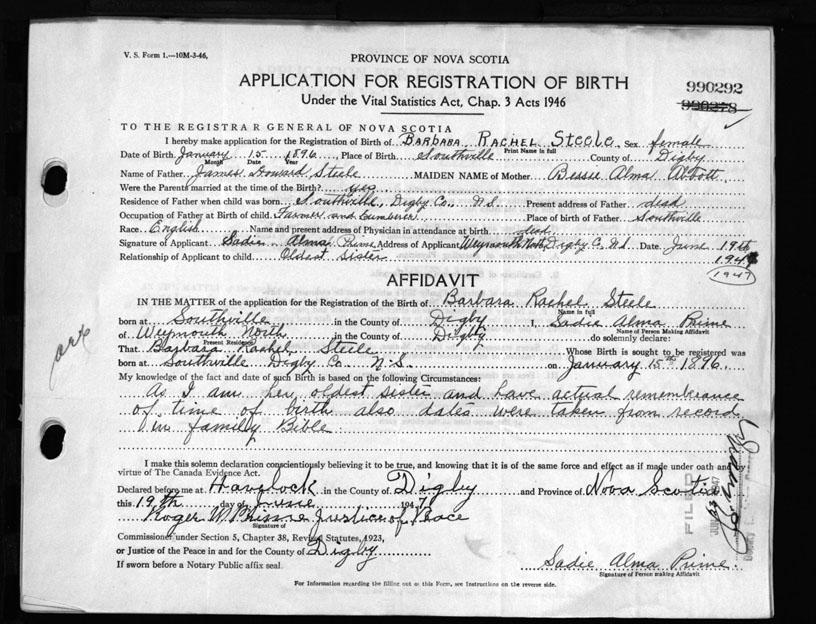 V. S. Form 1.—10M-3-46,
PROVINCE OF NOVA SCOTIA
APPLICATION FOR REGISTRATION OF BIRTH
990292
Under the Vital Statistics Act, Chap. 3 Acts 1946
990278
TO THE REGISTRAR GENERAL OF NOVA SCOTIA
I hereby make application for the Registration of Birth of BARBARA RACHEL Steele, Sex female
Print Name in full
Date of Birth January 15 1896, Place of Birth Southville County of Digby
Month Date Year
Name of Father James Howard Steele MAIDEN NAME of Mother Bessie Alma Abbott
Were the Parents married at the time of the Birth? yes
Residence of Father when child was born Southville, Digby Co, N.S Present address of Father dead
Occupation of Father at Birth of child Farmer and Lumberer Place of birth of Father Southville
Race English Name and present address of Physician in attendance at birth dead
Signature of Applicant Sadie Alma Prime Address of Applicant Weymouth North, Digby C, N.S. Date June 19th
Relationship of Applicant to child Oldest sister 194
1947
AFFIDAVIT
IN THE MATTER of the application for the Registration of the Birth of Barbara Rachel Steele
Name in full
born at Southville in the County of Digby I, Sadie Alma Prime
Name of Person Making Affidavit
of Weymouth North in the County of Digby do solemnly declare:
Present Residence
That Barbara Rachel Steele Whose Birth is sought to be registered was
born at Southville Digby Co N.S. on January 15th 1896.
My knowledge of the fact and date of such Birth is based on the following Circumstances:
As I am her oldest sister and have actual remembrance
of time of birth also dates were taken from record
in family Bible
I make this solemn declaration conscientiously believing it to be true, and knowing that it is of the same force and effect as if made under oath and by
virtue of The Canada Evidence Act.
Declared before me at Havelock in the County of Digby and Province of Nova Scotia
this 19th day of June 1947
Roger W Prime Justice of Peace
Signature of
Commissioner under Section 5, Chapter 38, Revised Statutes, 1923,
or Justice of the Peace in and for the County of Digby
If sworn before a Notary Public affix seal.
Sadie Alma Prime.
Signature of Person making Affidavit
For Information regarding the filling out of this Form, see Instructions on the reverse side.
FILED